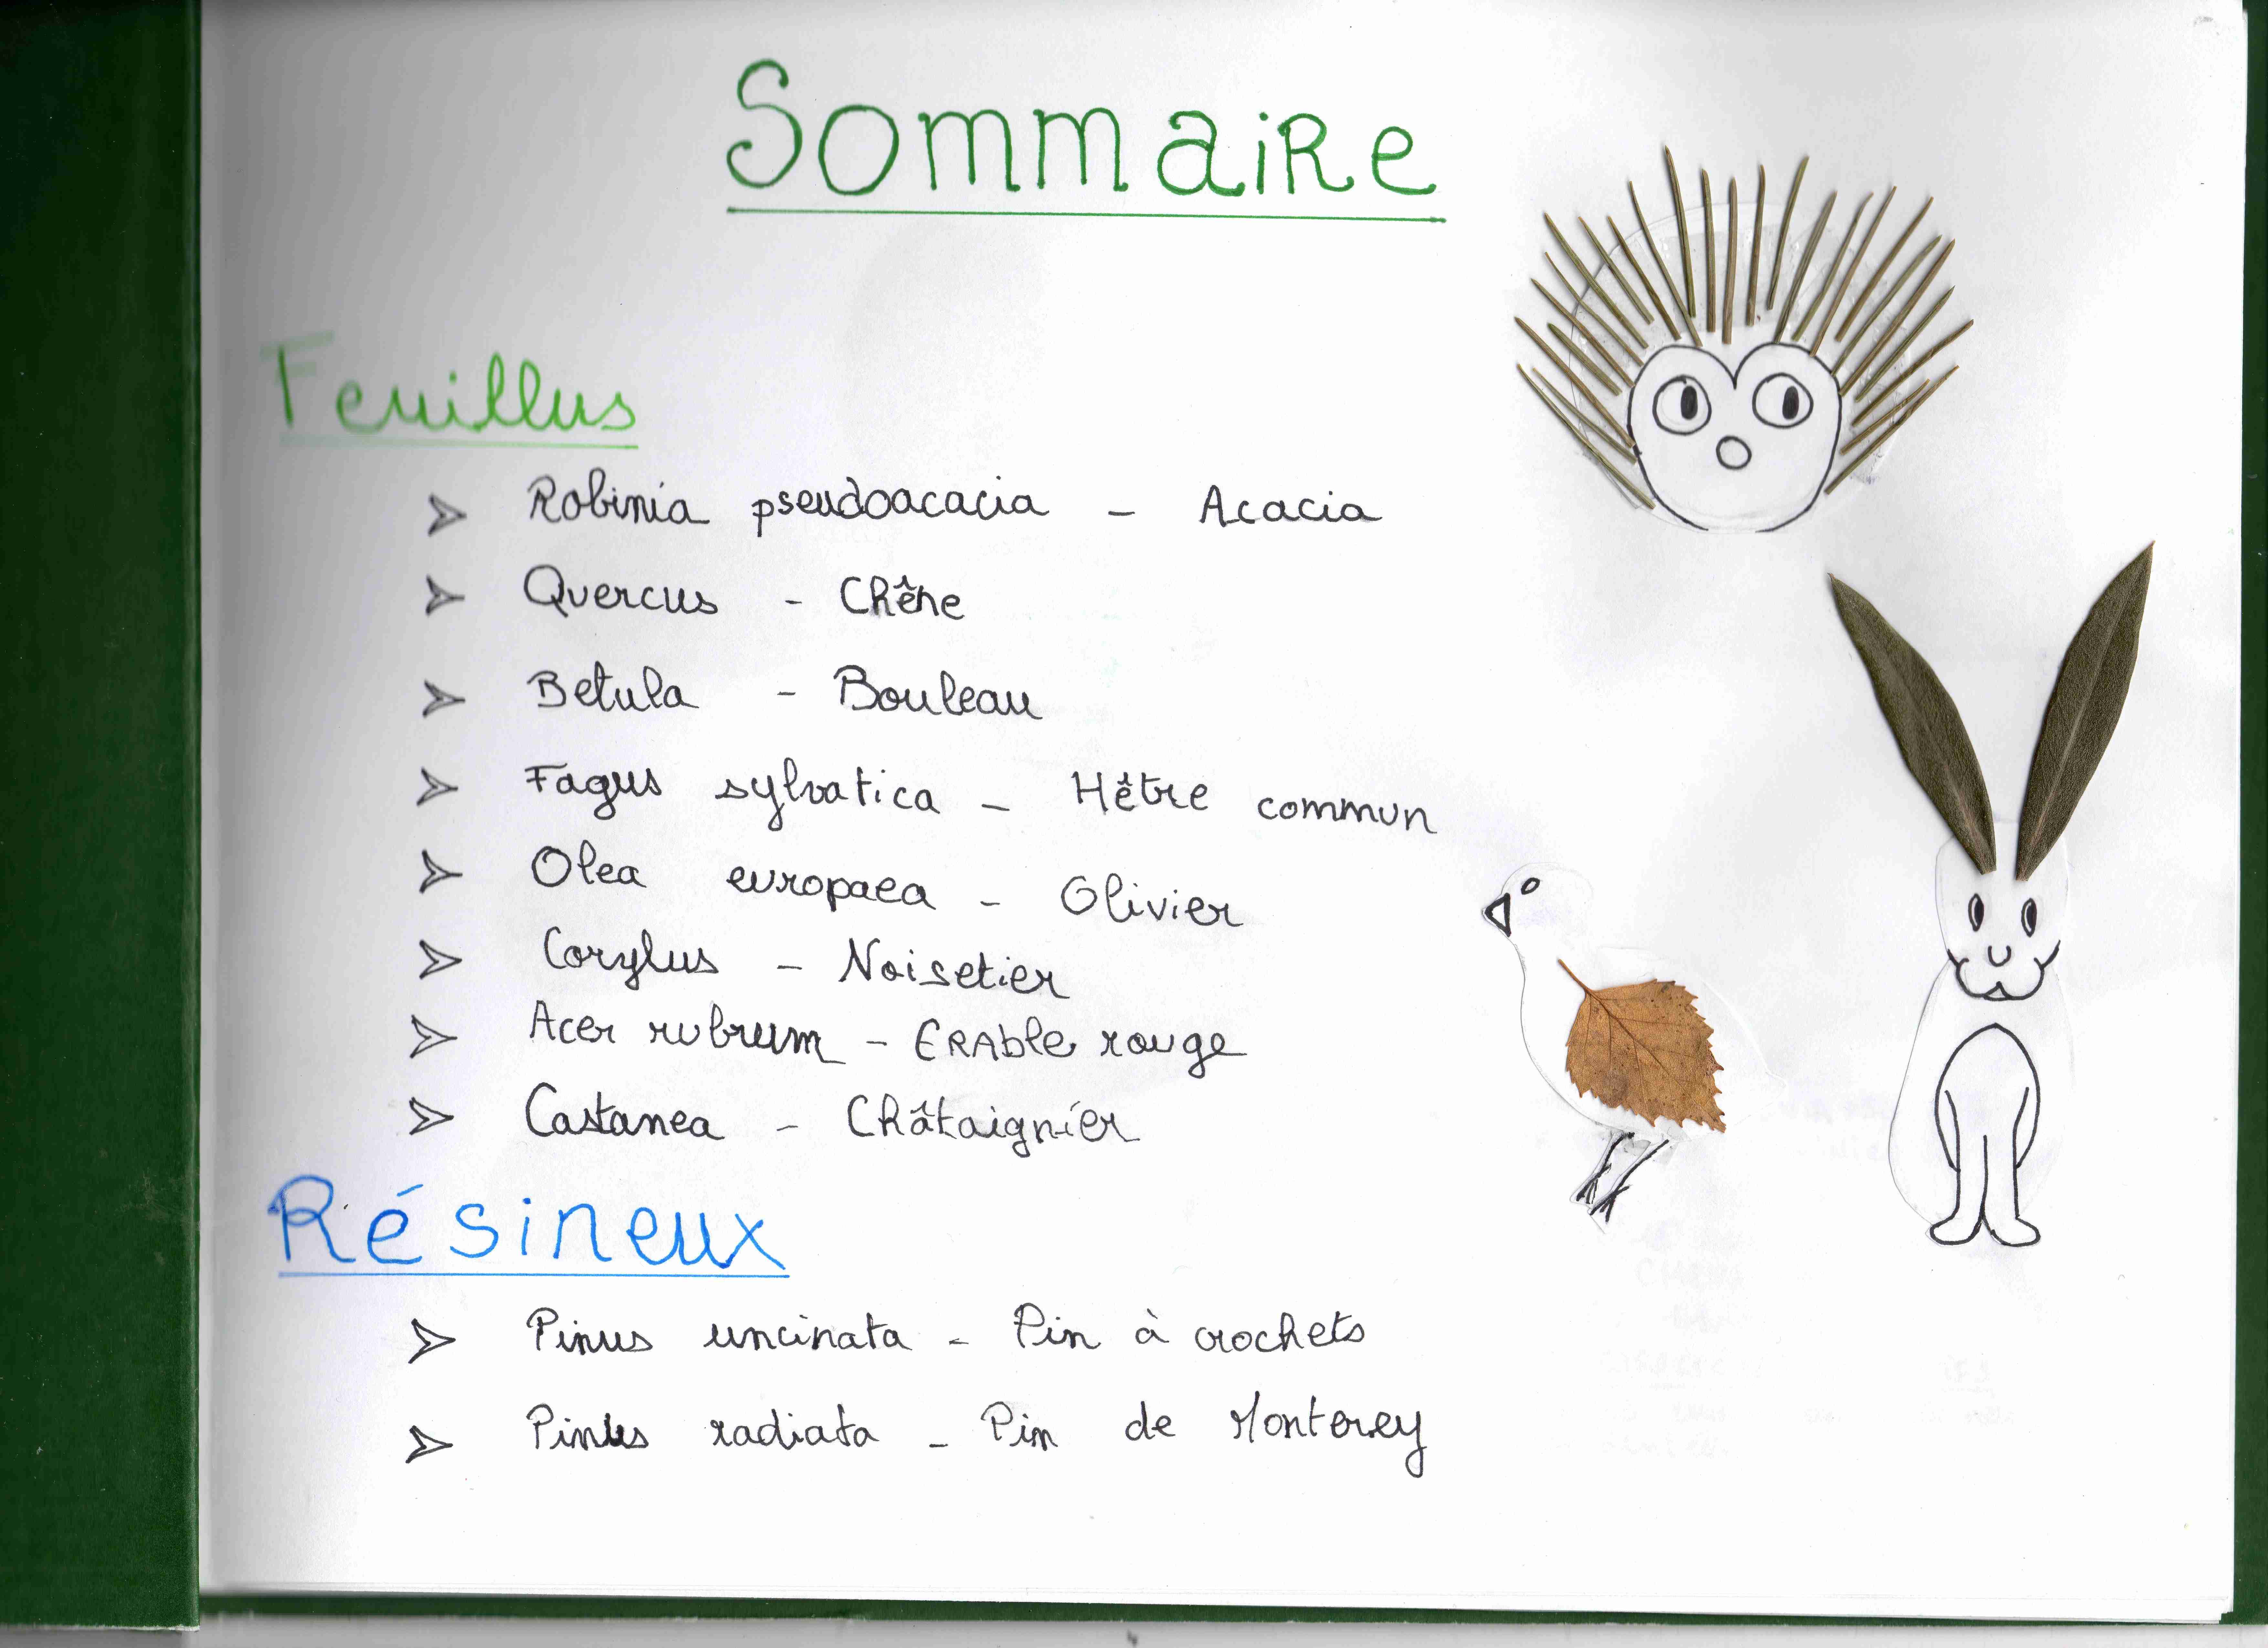 Sommaire
Feuillus
➢ Robinia pseudoacacia - Acacia
➢ Quercus - Chêne
➢ Betula - Bouleau
➢ Fagus sylvatica - Hêtre commun
➢ Olea europaea - Olivier
➢ Corylus - Noisetier
➢ Acer rubrum - ERAble rouge
➢ Castanea - Châtaignier
Résineux
➢ Pinus uncinata - Pin à crochets
➢ Pinus radiata - Pin de Monterey